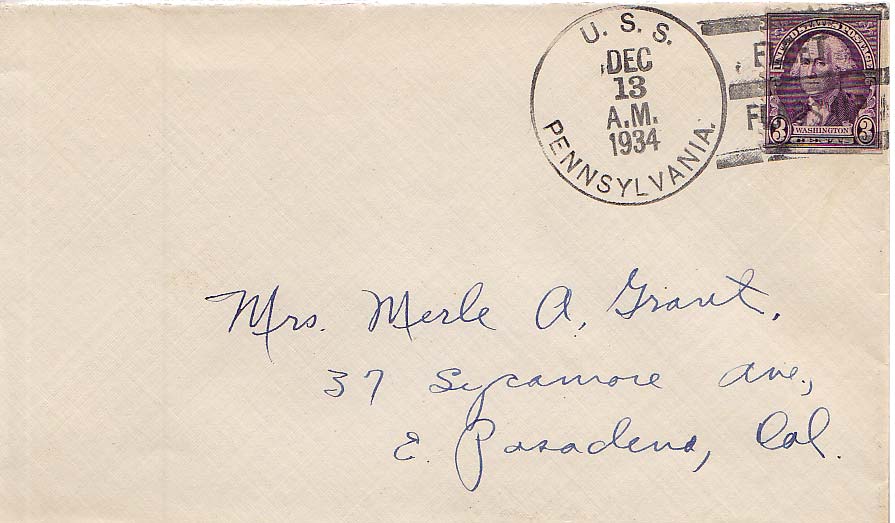 U. S. S.
DEC
13
A.M.
1934
PENNSYLVANIA.
UNITED STATES POSTAGE
3 WASHINGTON 3
Mrs. Merle A. Grant,
37 Sycamore Ave,
E. Pasadena, Cal.